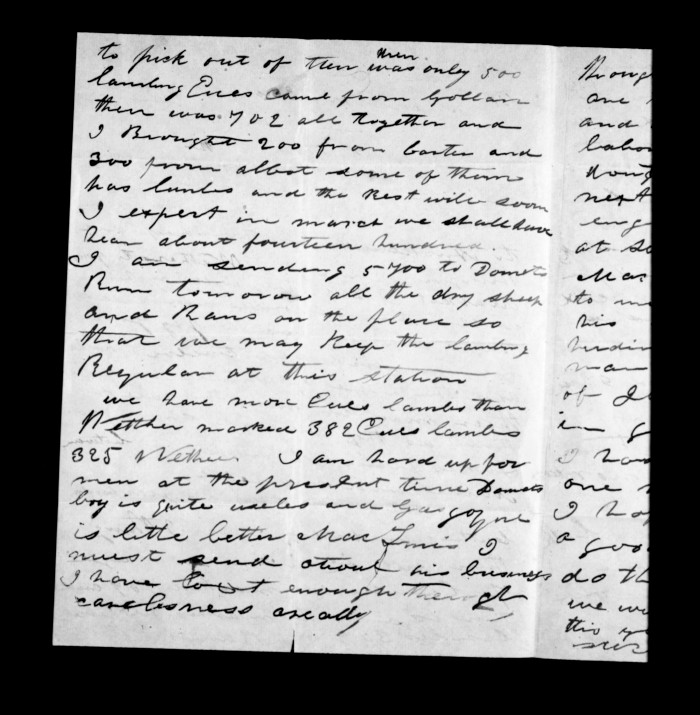 to pick out of them then was only 500
lambing Eues came from Gollan
there was 702 all together and
I Brought 200 from barter and
300 from albot some of them
has lambs and the Rest will soon
I expect in march we shall have
hear about fourteen hundred.
I am sending 5700 to Domets
Run tomorow all the dry sheep
and Rams on the place so
that we may Keep the lambing
Regular at this station
we have more Eues lambs than
Wether marked 382 Eues lambs
325 Wether I am hard up for
men at the present time Domets
boy is quite useles and Gasgoyne
is little better Mac Innis I
must send about his business
I have lost enough through
carelesness areally
throug
are
and
labou
next
eng
at
Mac
to
his
man
of
in g
I hav
one
I hop
a goo
do th
we wi
this